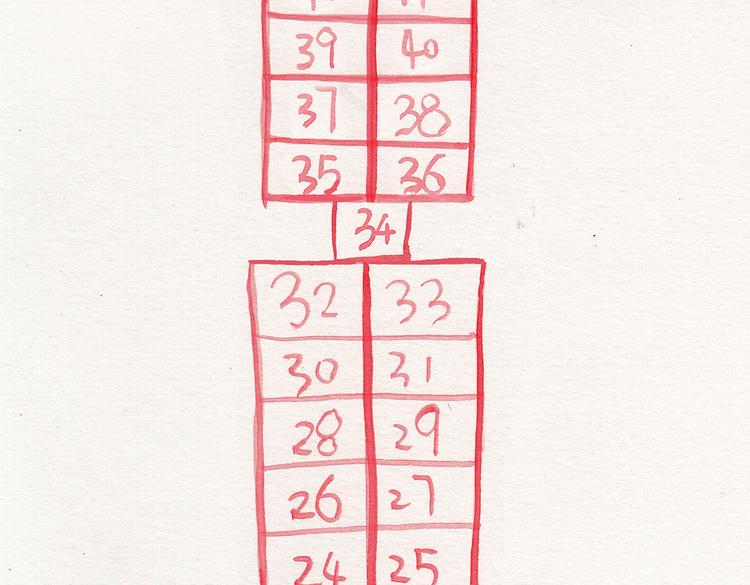 39 40
37 38
35 36
34
32 33
30 31
28 29
26 27
24 25